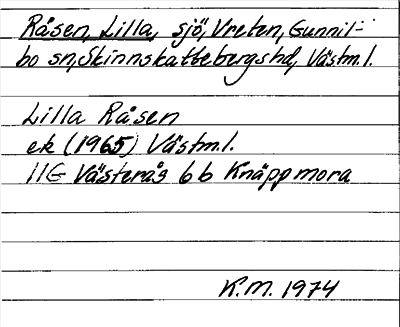 Råsen, Lilla, sjö, Vreten, Gunnil-
bo sn, Skinnskattebergs hd, Västm.l.
Lilla Råsen
ek (1965) Västm.l.
11G Västerås 6b Knäppmora
K.M. 1974